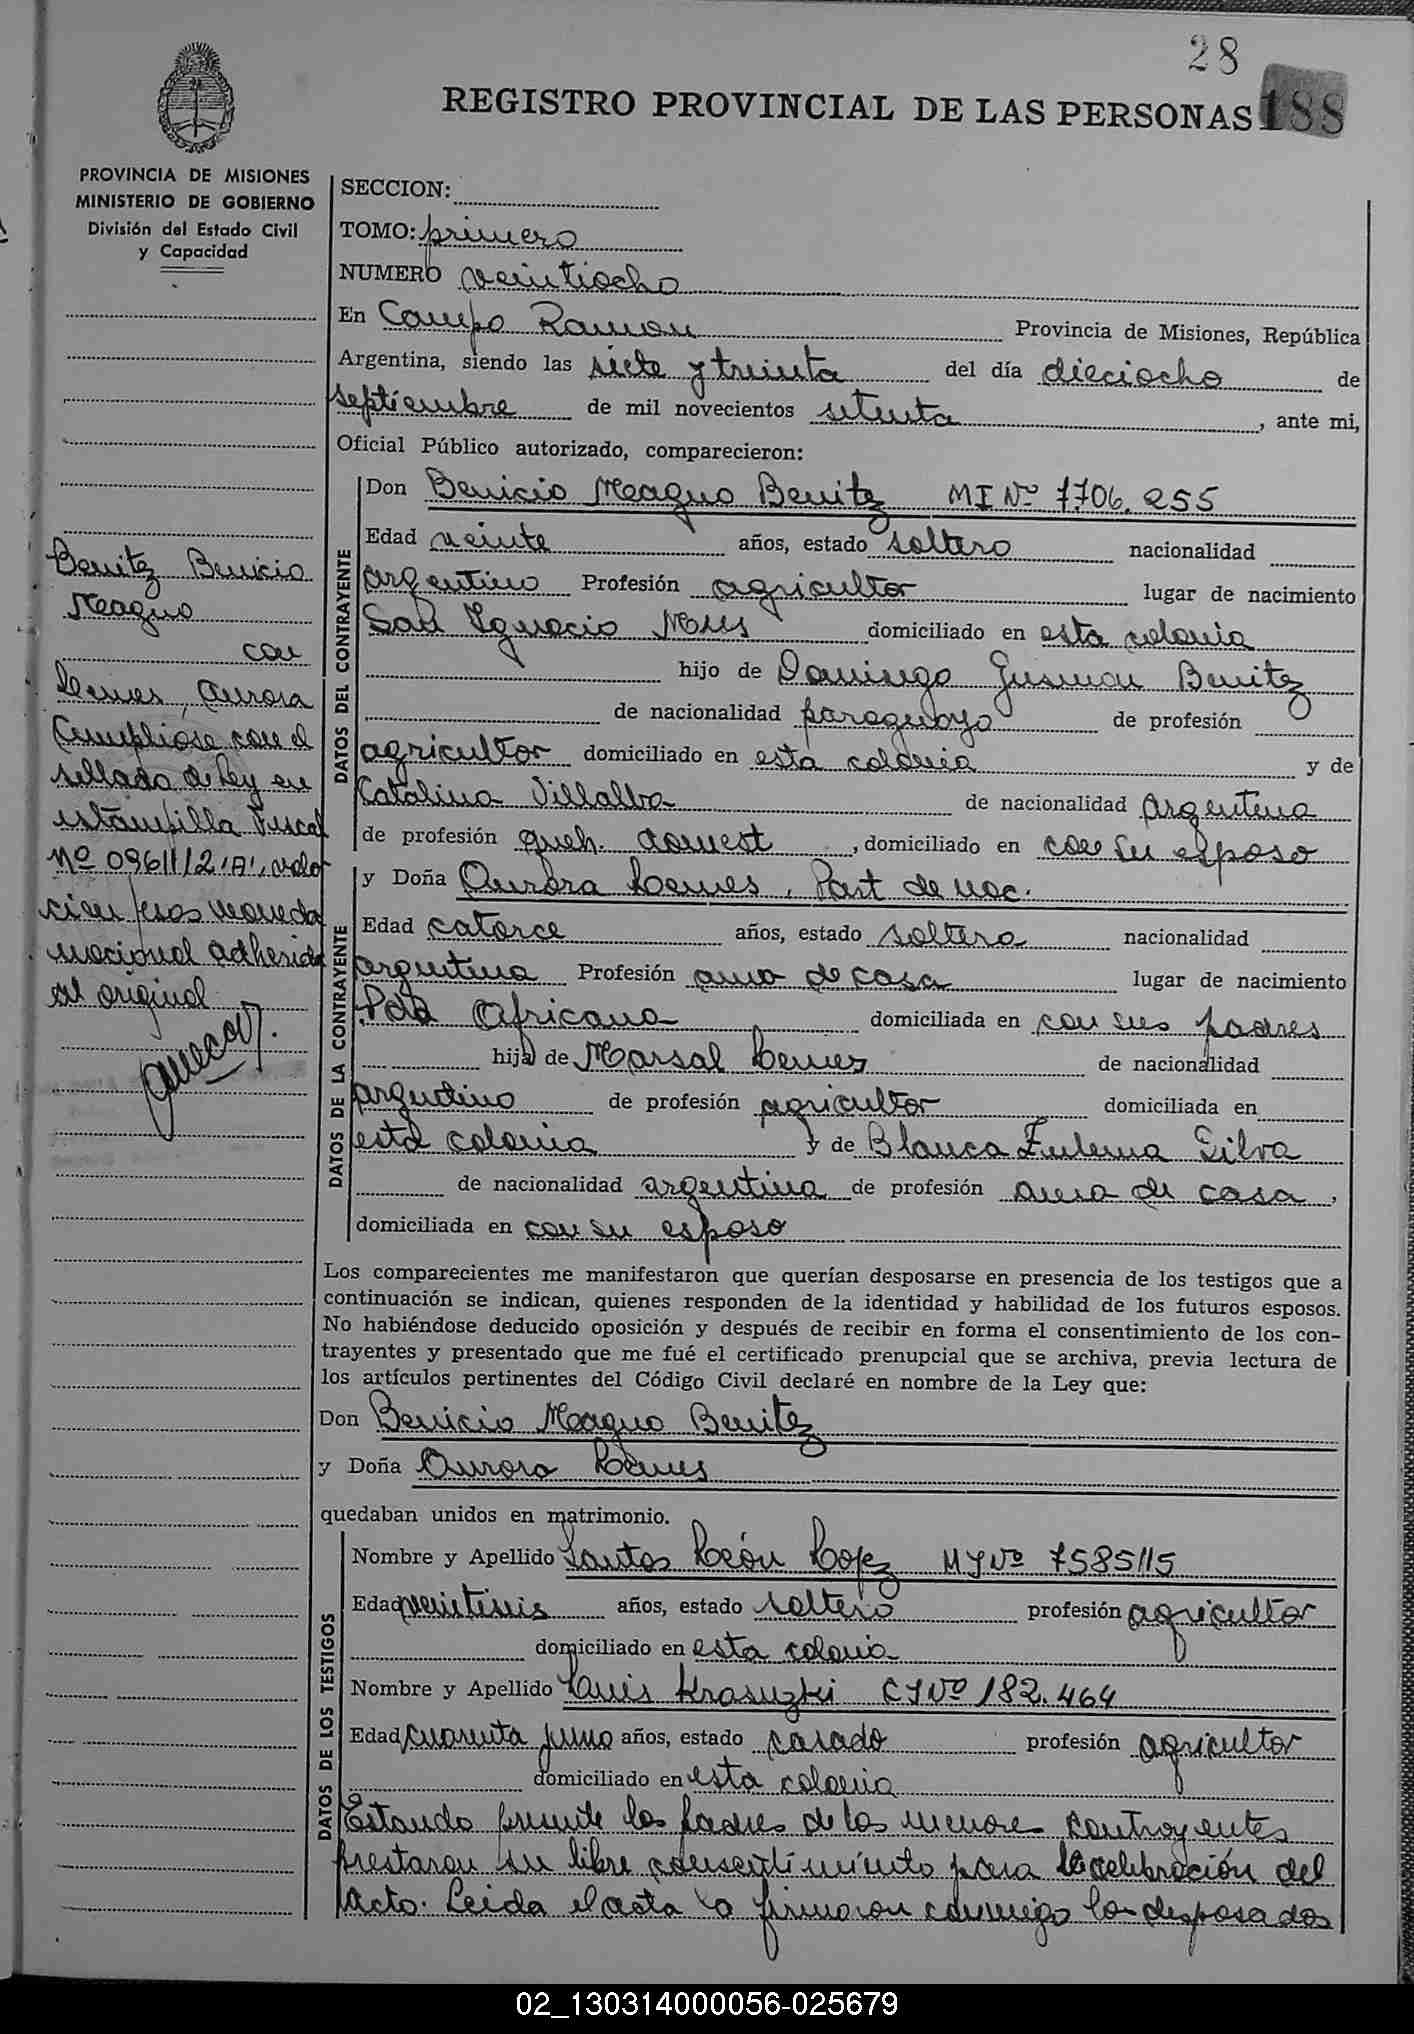 28
REGISTRO PROVINCIAL DE LAS PERSONAS 188
PROVINCIA DE MISIONES
MINISTERIO DE GOBIERNO
División del Estado Civil
y Capacidad
SECCION:
TOMO: primero
NUMERO veintiocho
En Campo Ramon Provincia de Misiones, República
Argentina, siendo las siete y treinta del día dieciocho de
septiembre de mil novecientos setenta, ante mi,
Oficial Público autorizado, comparecieron:
DATOS DEL CONTRAYENTE
Don Benicio Magno Benitez MI Nº 7.706.255
Edad veinte años, estado soltero nacionalidad
argentino Profesión agricultor lugar de nacimiento
San Ignacio Mnes domiciliado en esta colonia
hijo de Domingo Gusman Benitez
de nacionalidad paraguayo de profesión
agricultor domiciliado en esta colonia y de
Catalina Villalba de nacionalidad argentina
de profesión queh. domest, domiciliado en con su esposo
DATOS DE LA CONTRAYENTE
y Doña Aurora Lemes, Part de nac.
Edad catorce años, estado soltera nacionalidad
argentina Profesión ama de casa lugar de nacimiento
Pda Africana domiciliada en con sus padres
hija de Marsal Lemes de nacionalidad
argentino de profesión agricultor domiciliada en
esta colonia y de Blanca Zulema Silva
de nacionalidad argentina de profesión ama de casa,
domiciliada en con su esposo
Benitez Benicio
Magno
con
Lemes, Aurora
Cumpliose con el
sellado de Ley en
estampilla Fiscal
Nº 0961112 "A", valor
cien pesos moneda
nacional adherida
al original
Los comparecientes me manifestaron que querían desposarse en presencia de los testigos que a
continuación se indican, quienes responden de la identidad y habilidad de los futuros esposos.
No habiéndose deducido oposición y después de recibir en forma el consentimiento de los con-
trayentes y presentado que me fué el certificado prenupcial que se archiva, previa lectura de
los artículos pertinentes del Código Civil declaré en nombre de la Ley que:
Don Benicio Magno Benitez
y Doña Aurora Lemes
quedaban unidos en matrimonio.
DATOS DE LOS TESTIGOS
Nombre y Apellido Santos León Lopez MI Nº 7585115
Edad veintiseis años, estado soltero profesión agricultor
domiciliado en esta colonia
Nombre y Apellido Luis CI Nº 182.464
Edad cuarenta y uno años, estado casado profesión agricultor
domiciliado en esta colonia
Estando presente los padres de los menores contrayentes
prestaron su libre consentimiento para la celebración del
acto. Leida el acta la firmaron conmigo los desposados
02_130314000056-025679